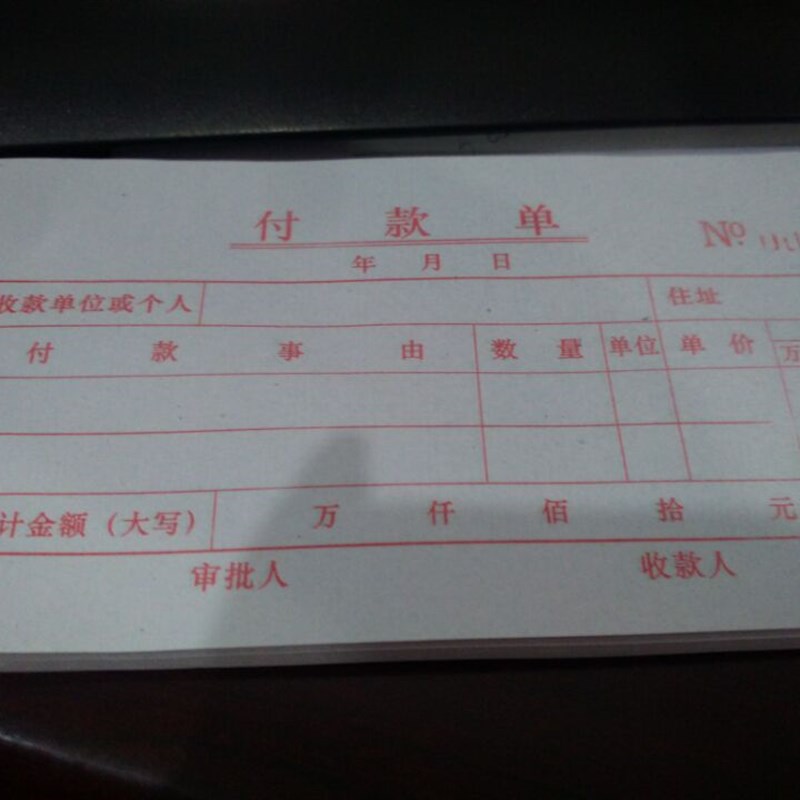 付 款 单
No.
年 月 日
收款单位或个人 住址
付 款 事 由 数 量 单位 单 价
万
计金额（大写） 万 仟 佰 拾 元
审批人 收款人